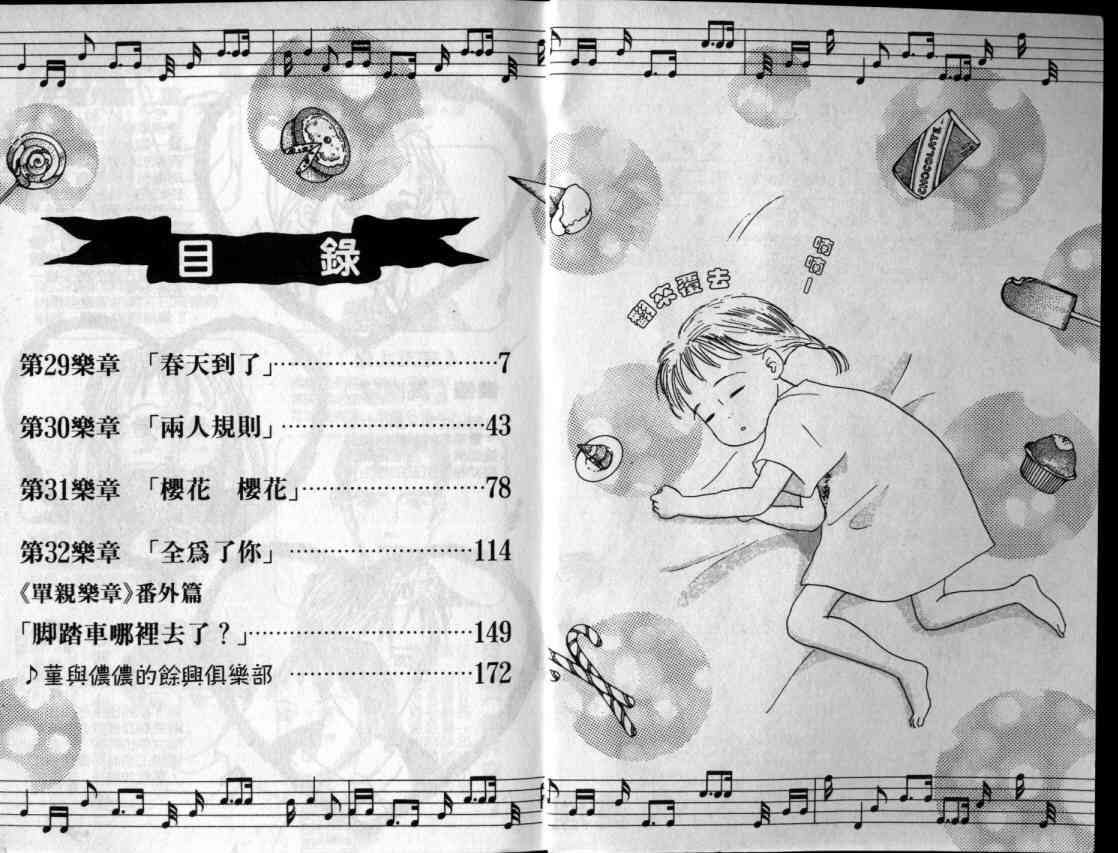 目 錄
第29樂章 「春天到了」……………………7
第30樂章 「兩人規則」……………………43
第31樂章 「櫻花 櫻花」…………………78
第32樂章 「全爲了你」…………………114
《單親樂章》番外篇
「脚踏車哪裡去了?」……………………149
♪菫與儂儂的餘興俱樂部 …………………172
CHOCOLATE
翻來覆去